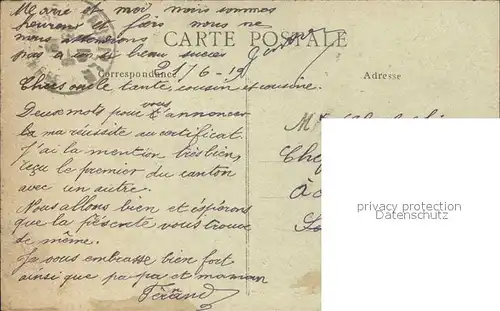 Marie et moi nous sommes
heureux et fiers nous ne
nous attendions
pas à un si beau succès
CARTE POSTALE
Correspondance
Adresse
21/6-19
Chers oncle tante, cousin et cousine.
Deux mots pour vous annoncer
ma réussite au certificat.
J'ai la mention très bien,
reçu le premier du canton
avec un autre.
Nous allons bien et espérons
que la présente vous trouve
de même.
Je vous embrasse bien fort
ainsi que papa et maman
Fernand
M
Che
à
privacy protection
Datenschutz